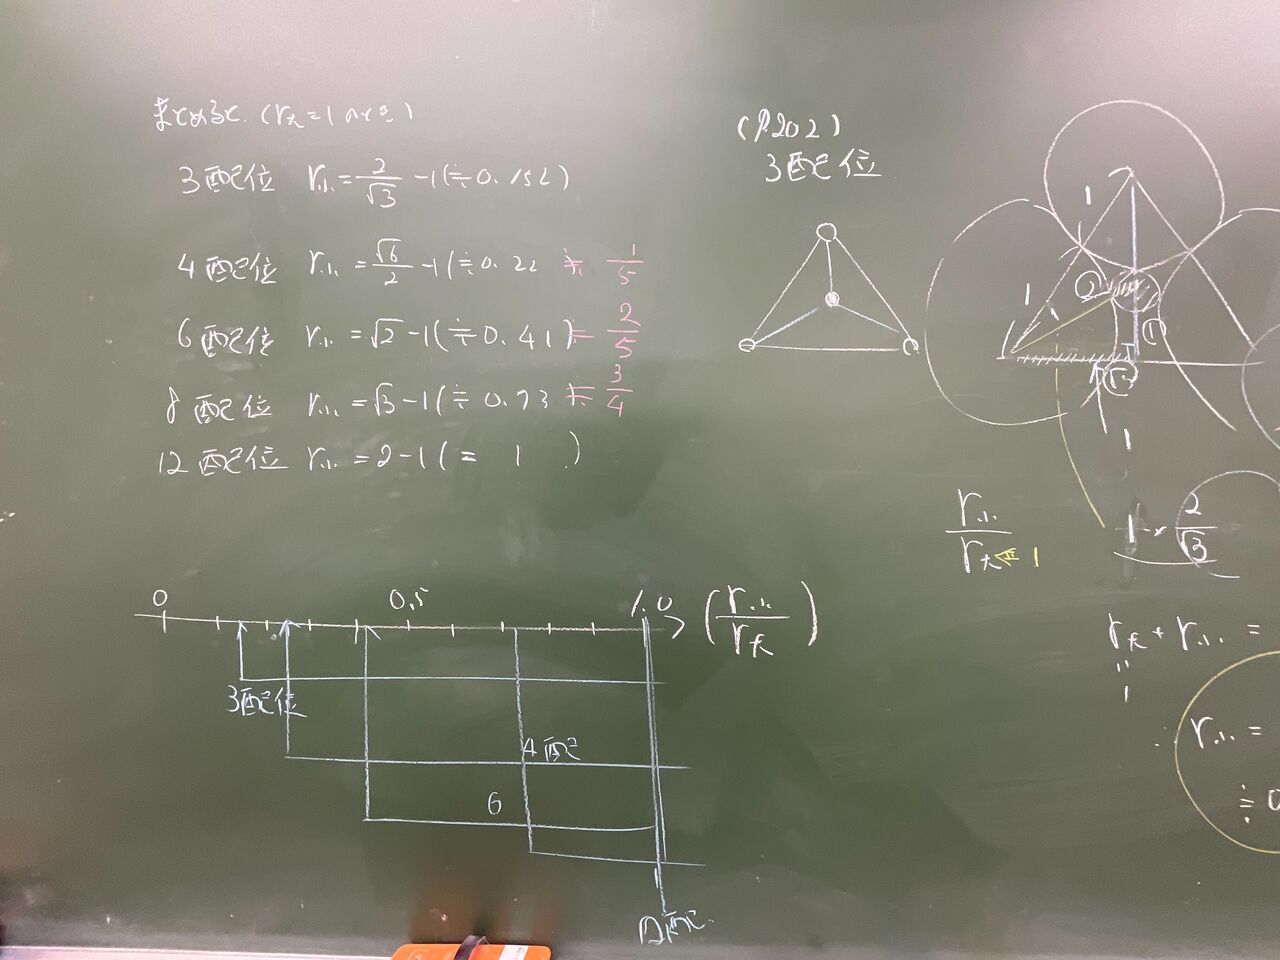 まとめると. (r大=1のとき)
3配位 r小=2/√3-1(≒0.152)
4配位 r小=√6/2-1(≒0.22 ≒ 1/5
6配位 r小=√2-1(≒0.41)≒ 2/5
8配位 r小=√3-1(≒0.73 ≒ 3/4
12配位 r小=2-1(= 1 )
(P202)
3配位
1
1
②
①
√3
1
r小/r大 ⇐ 1
1×2/√3
r大+r小=
"
1
∴ r小=
≒0
0 0.5 1.0 (r小/r大)
3配位
4配
6
12配